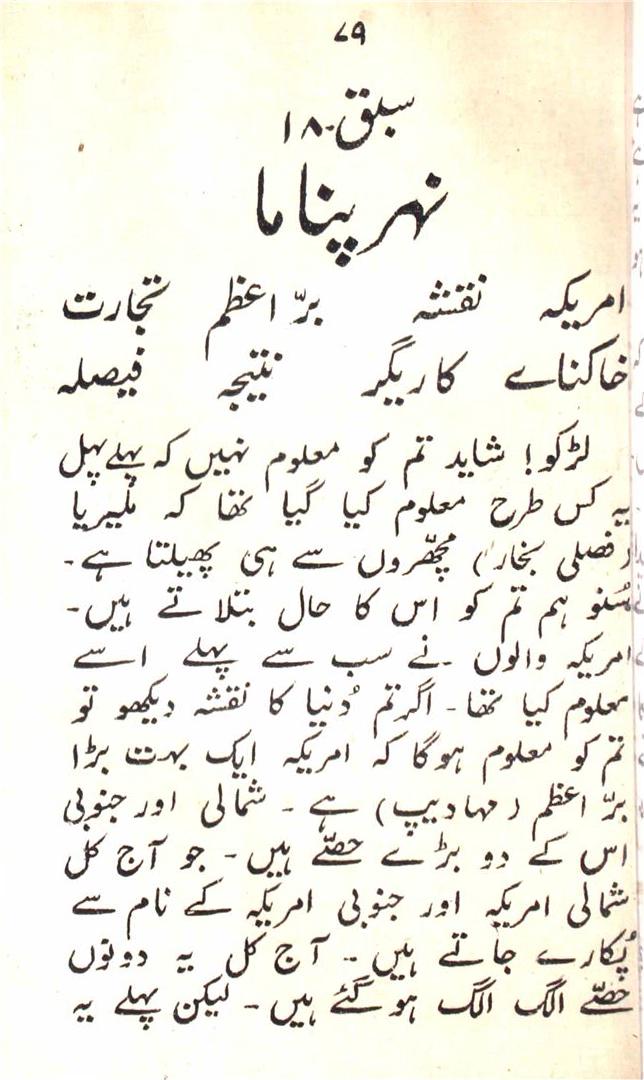 ۷۹
سبق-۱۸
نہر پناما
امریکہ نقشہ برّ اعظم تجارت
خاکناے کاریگر نتیجہ فیصلہ
لڑکو! شاید تم کو معلوم نہیں کہ پہلے پہل
یہ کس طرح معلوم کیا گیا تھا کہ ملیریا
(فصلی بخار) مچھّروں سے ہی پھیلتا ہے۔
سُنو ہم تم کو اس کا حال بتلاتے ہیں۔
امریکہ والوں نے سب سے پہلے اسے
معلوم کیا تھا۔ اگر تم دُنیا کا نقشہ دیکھو تو
تم کو معلوم ہوگا کہ امریکہ ایک بہت بڑا
برّ اعظم (مہادیپ) ہے۔ شمالی اور جنوبی
اس کے دو بڑے حصّے ہیں۔ جو آج کل
شمالی امریکہ اور جنوبی امریکہ کے نام سے
پُکارے جاتے ہیں۔ آج کل یہ دونوں
حصّے الگ الگ ہو گئے ہیں۔ لیکن پہلے یہ